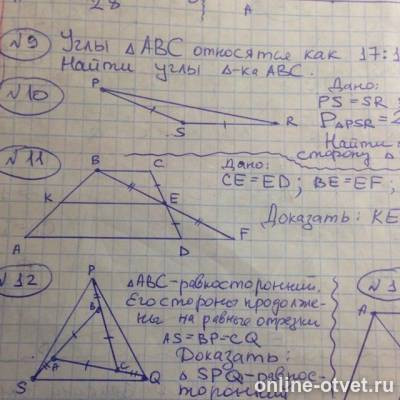 28
A
№9 Углы △ABC относятся как 17:1
Найти углы △-ка ABC.
№10
P
S
R
Дано:
PS=SR
P△PSR=2
Найти
сторону △
№11
B
C
K
E
A
D
F
Дано:
CE=ED; BE=EF;
Доказать: KE
№12
P
B
A
C
S
Q
△ABC-равносторонний.
Его стороны продолже-
ны на равные отрезки
AS=BP=CQ
Доказать:
△SPQ-равнос-
торонний
№1
A
online-otvet.ru